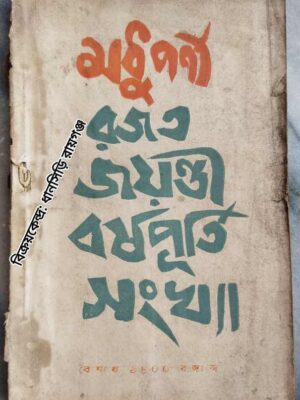 মধুপর্ণী
রজত
জয়ন্তী
বর্ষপূর্তি
সংখ্যা
বিক্রয়কেন্দ্র: ধানসিড়ি রায়গঞ্জ
বৈশাখ ১৪০০ বঙ্গাব্দ